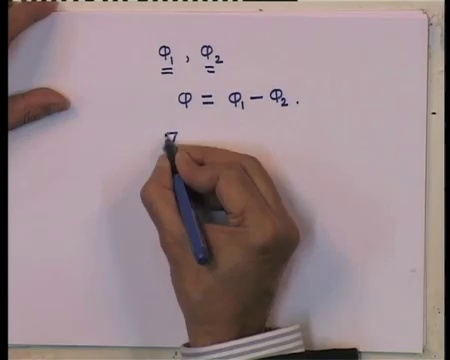 φ₁ , φ₂
φ = φ₁ − φ₂ .
∇